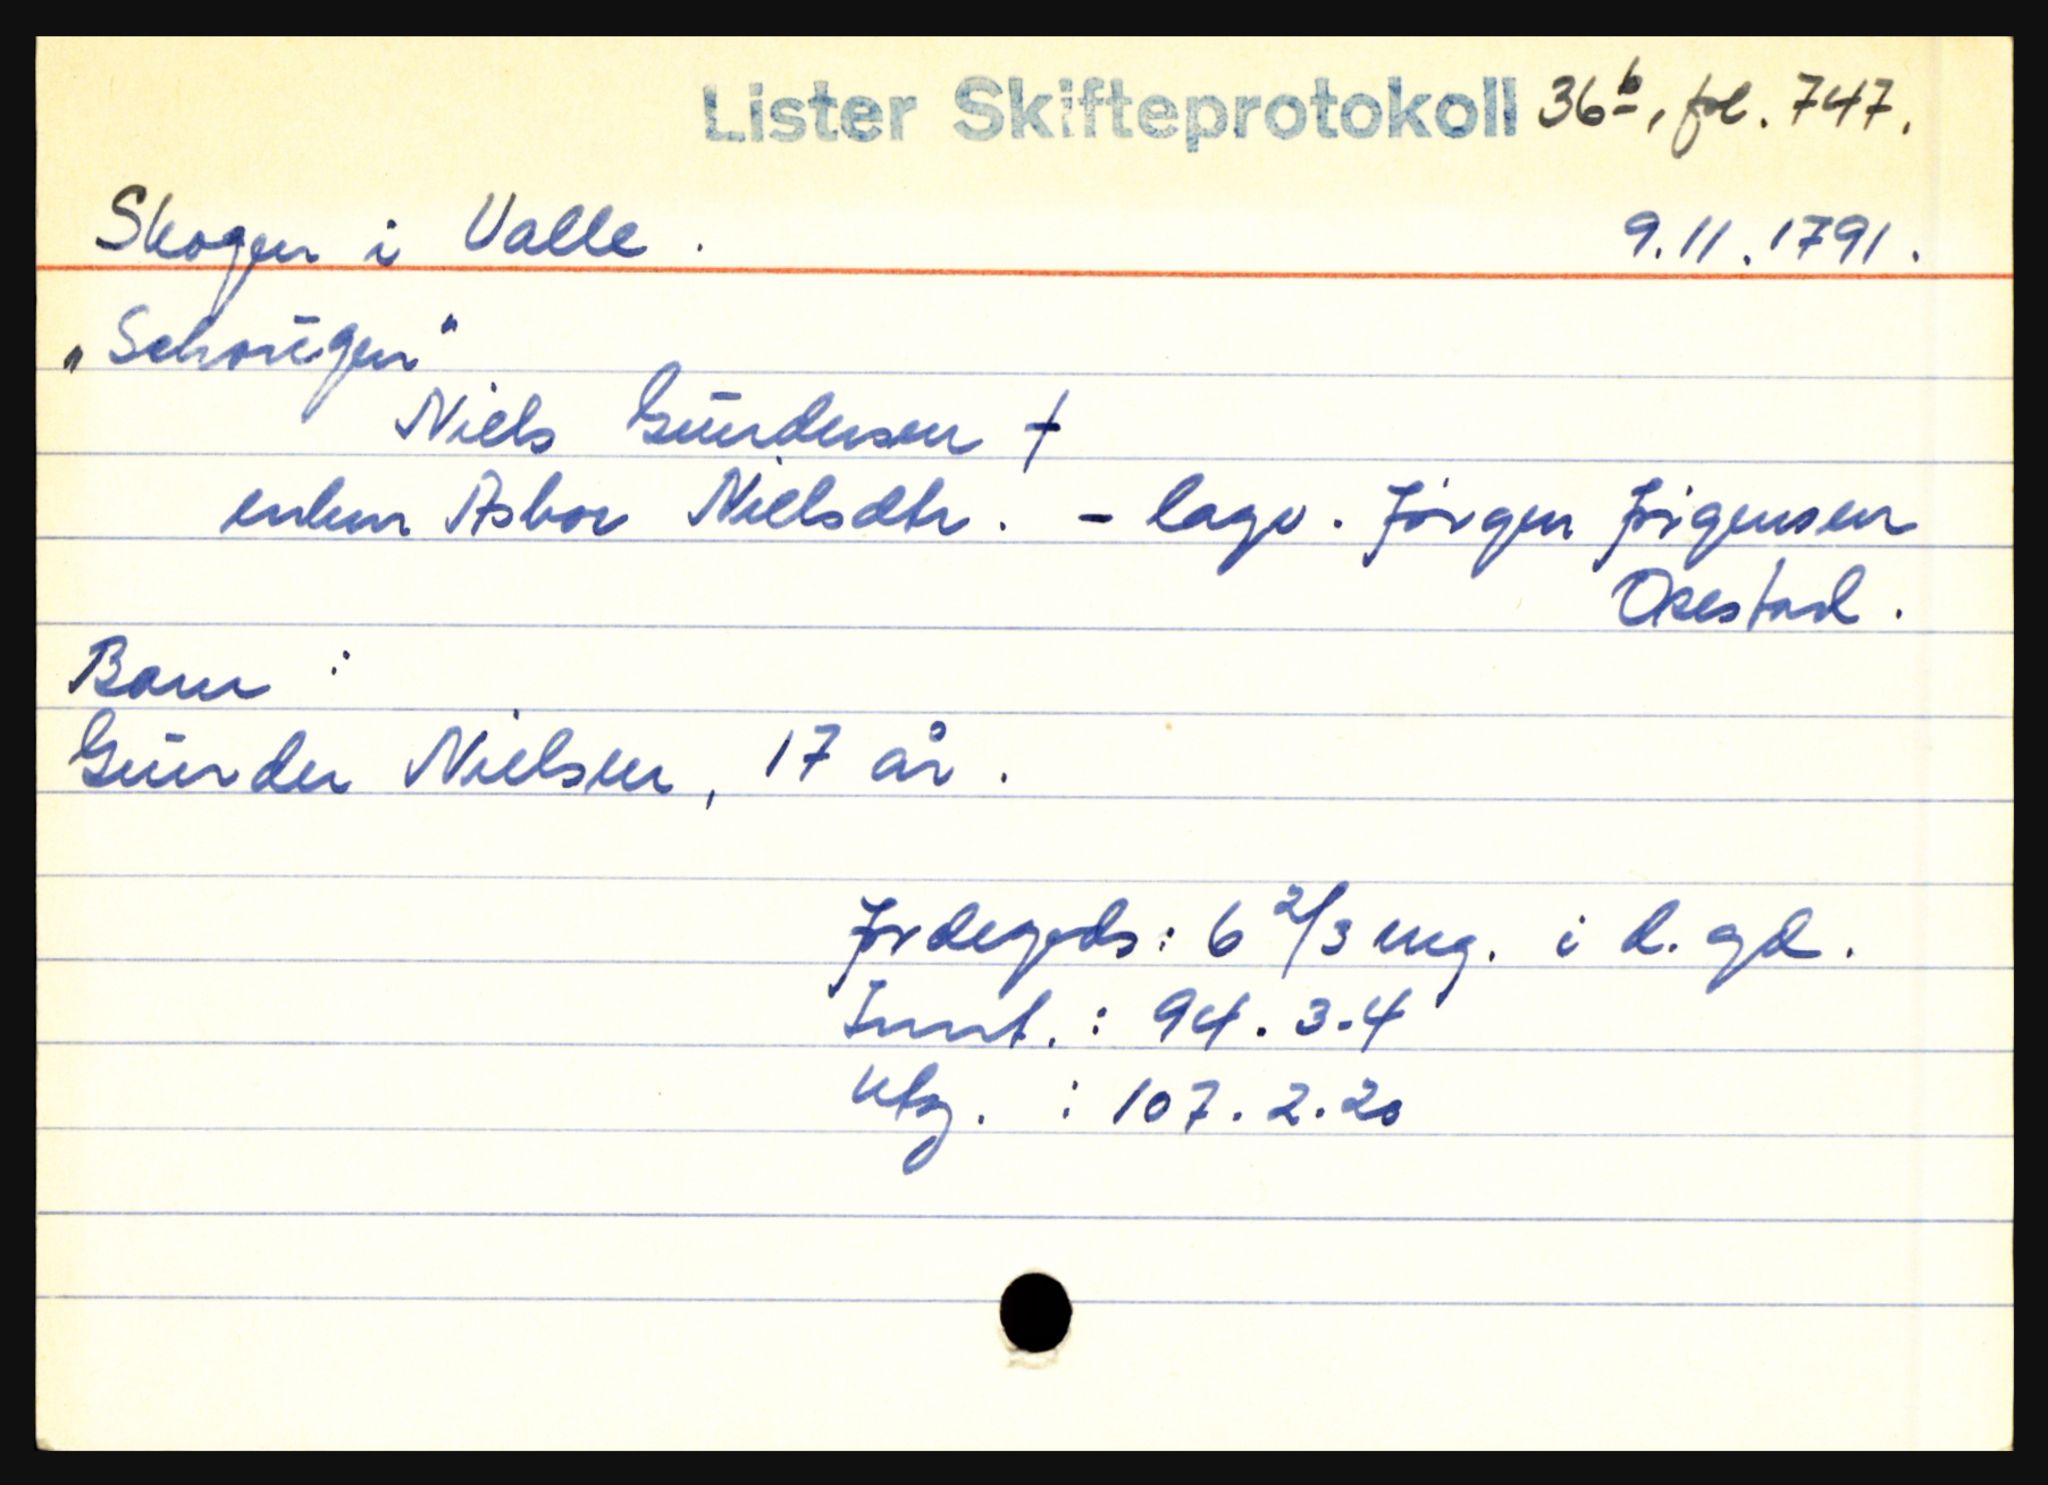 Lister Skifteprotokoll 36b, fol. 747.
Skogen i Valle. 9.11.1791.
„Schougen"
Niels Gundersen †
enken Asbor Nielsdtr. - lagv. Jørgen Jørgensen
Osestad.
Barn:
Gunder Nielsen, 17 år.
Jordegods: 6 2/3 mg. i d. gd.
Innt.: 94.3.4
Utg.: 107.2.20